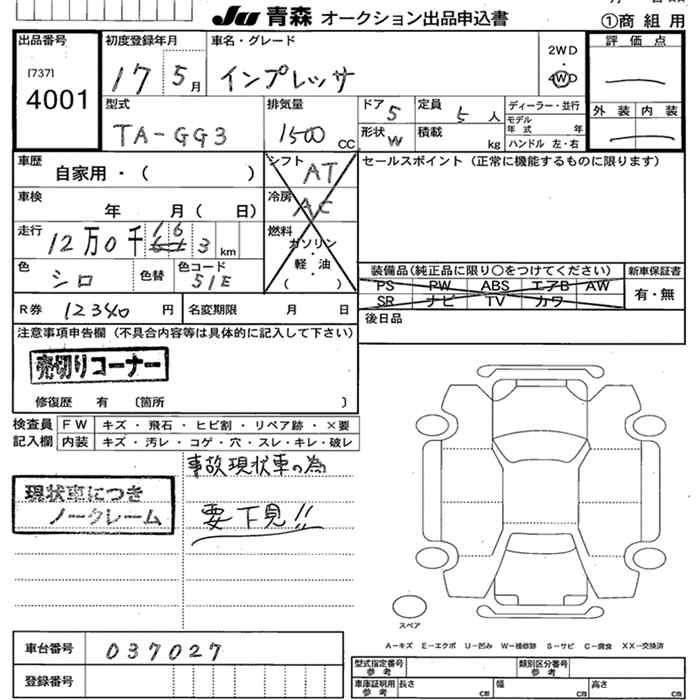 Ju 青森 オークション出品申込書
①商組用
出品番号
[737]
4001
初度登録年月
17 5月
車名・グレード
インプレッサ
2WD
・
4WD
評価点
型式
TA-GG3
排気量
1500 cc
ドア 5
定員 5 人
形状 W
積載 kg
ディーラー・並行
モデル年式 年
ハンドル 左・右
外装 内装
車歴
自家用・( )
シフト AT
セールスポイント(正常に機能するものに限ります)
車検
年 月( 日)
冷房 AC
走行
12万0千 163 km
燃料
ガソリン
・
軽・油
( )
色
シロ
色替
色コード
51E
装備品(純正品に限り○をつけてください)
新車保証書
PS PW ABS エアB AW
SR ナビ TV カワ
有・無
R券 12340 円
名変期限 月 日
後日品
注意事項申告欄(不具合内容等は具体的に記入して下さい)
売切りコーナー
修復歴 有 〔箇所 〕
検査員記入欄
FW キズ・飛石・ヒビ割・リペア跡・×要
内装 キズ・汚レ・コゲ・穴・スレ・キレ・破レ
事故現状車の為
現状車につき
ノークレーム
要下見!!
スペア
A-キズ E-エクボ U-凹み W-補修跡 S-サビ C-腐食 XX-交換済
車台番号
037027
登録番号
型式指定番号 参考
類別区分番号 参考
車庫証明用 参考
長さ cm
幅 cm
高さ cm